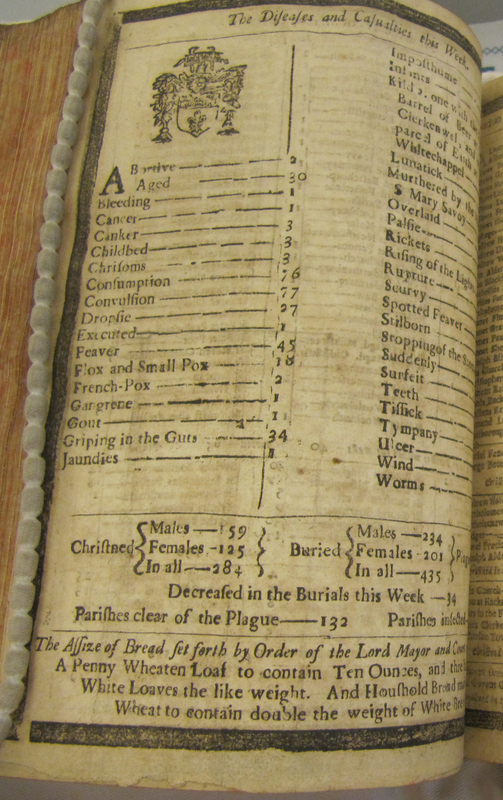 The Diſeaſes and Caſualties this Week.
ABortive 2
Aged 30
Bleeding 1
Cancer 1
Canker 3
Childbed 3
Chriſoms 3
Conſumption 76
Convulſion 77
Dropſie 27
Executed 1
Feaver 45
Flox and Small Pox 18
French-Pox 2
Gangrene 1
Gout 1
Griping in the Guts 34
Jaundies
Impoſthume
Infants
Kild 2, one with
Barrel of Beer
Clerkenwel, and
pariſh of
Whitechappel
Lunatick
Murthered by the
S Mary Savoy
Overlaid
Palſie
Rickets
Riſing of the Lights
Rupture
Scurvy
Spotted Feaver
Stilborn
Stopping of the
Suddenly
Surfeit
Teeth
Tiſſick
Tympany
Ulcer
Wind
Worms
Chriſtned { Males — 159 Females - 125 In all — 284 }
Buried { Males — 234 Females - 201 In all — 435 }
Decreaſed in the Burials this Week — 34
Pariſhes clear of the Plague — 132 Pariſhes infected
The Aſſize of Bread ſet forth by Order of the Lord Mayor and Court
A Penny Wheaten Loaf to contain Ten Ounces, and three
White Loaves the like weight. And Houſhold Bread
Wheat to contain double the weight of White